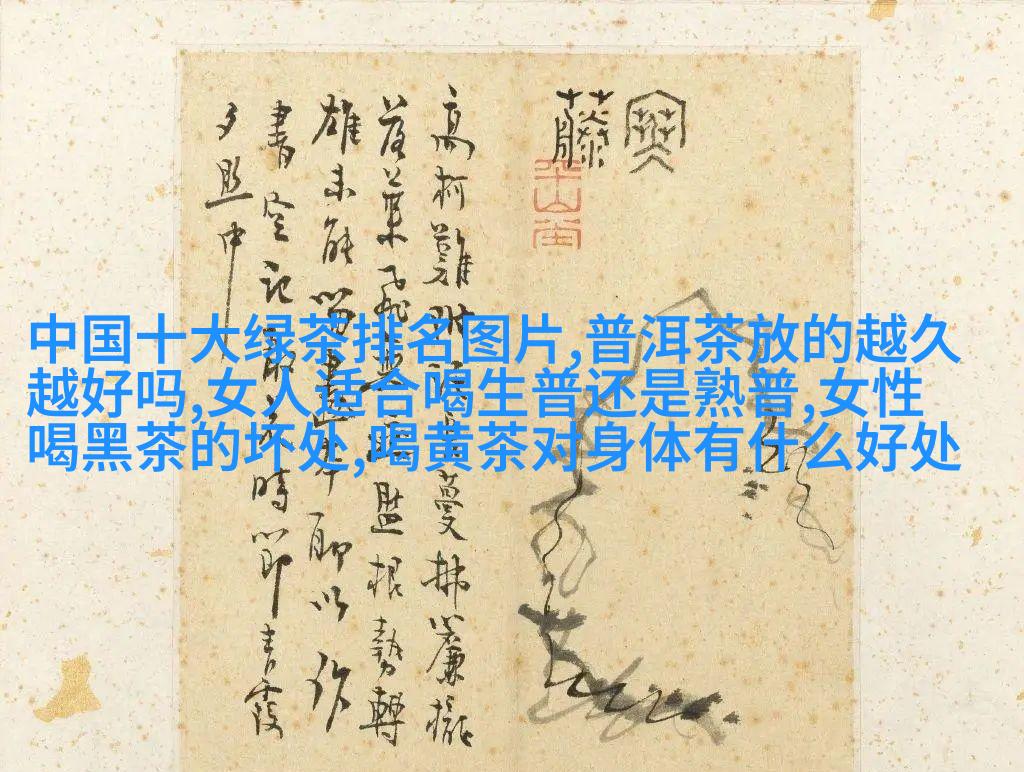 中国十大绿茶排名图片,普洱茶放的越久
越好吗,女人适合喝生普还是熟普,女性
喝黑茶的坏处,喝黄茶对身体有什么好处
藤
高柯難附蔓拂簾櫳
落葉根勢轉
雄未能聊以作
書空記時節青霞
夕照中